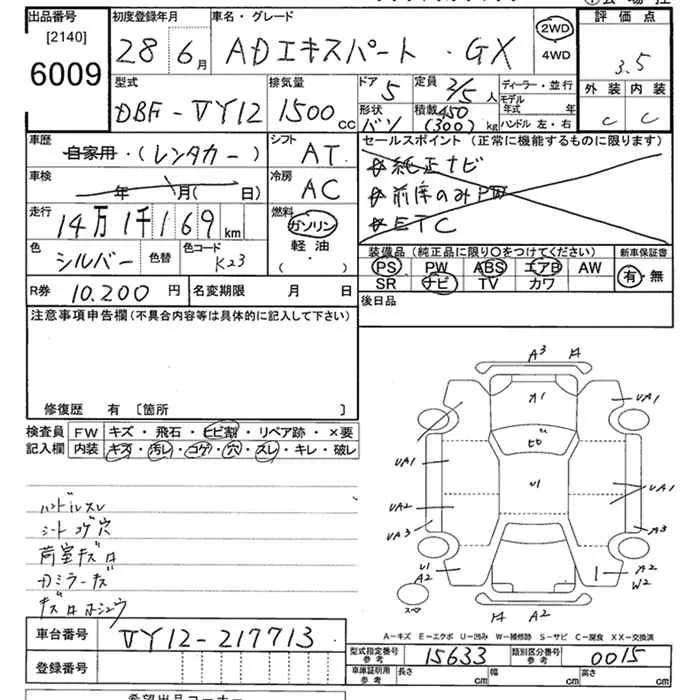 出品番号 初度登録年月 車名・グレード 評価点
[2140]
6009
28年6月 ADエキスパート・GX 2WD 4WD 3.5
外装 内装
C C
型式 排気量 ドア 定員 ディーラー・並行
DBF-VY12 1500cc 5 2/5人 モデル年式 年
形状 積載 ハンドル 左・右
バン 450(300)kg
車歴 シフト セールスポイント (正常に機能するものに限ります)
自家用・(レンタカー) AT
☆純正ナビ
車検 冷房
年 月(日) AC
☆前席のみPW
☆ETC
走行 燃料
14万1千169km ガソリン
軽油
・( )
色 色替 色コード
シルバー K23
装備品 (純正品に限り○をつけてください) 新車保証書
PS PW ABS エアB AW 有・無
SR ナビ TV カワ
R券 10,200円 名変期限 月 日
後日品
注意事項申告欄(不具合内容等は具体的に記入して下さい)
修復歴 有 〔箇所 〕
検査員 FW キズ・飛石・ヒビ割・リペア跡・×要
記入欄 内装 キズ・汚レ・コゲ・穴・スレ・キレ・破レ
ハンドルスレ
シートコゲ穴
荷室キズ
A3
A1
UA1 UA1
UA1 U1 UA1
UA2
UA3 A3
U1
A2 A2
W2
スペア
A2
A-キズ E-エクボ U-凹み W-補修跡 S-サビ C-腐食 XX-交換済
車台番号 VY12-217713
型式指定番号 参考 15633 類別区分番号 参考 0015
登録番号
車庫証明用 参考 長さ cm 幅 cm 高さ cm
希望出品コーナー